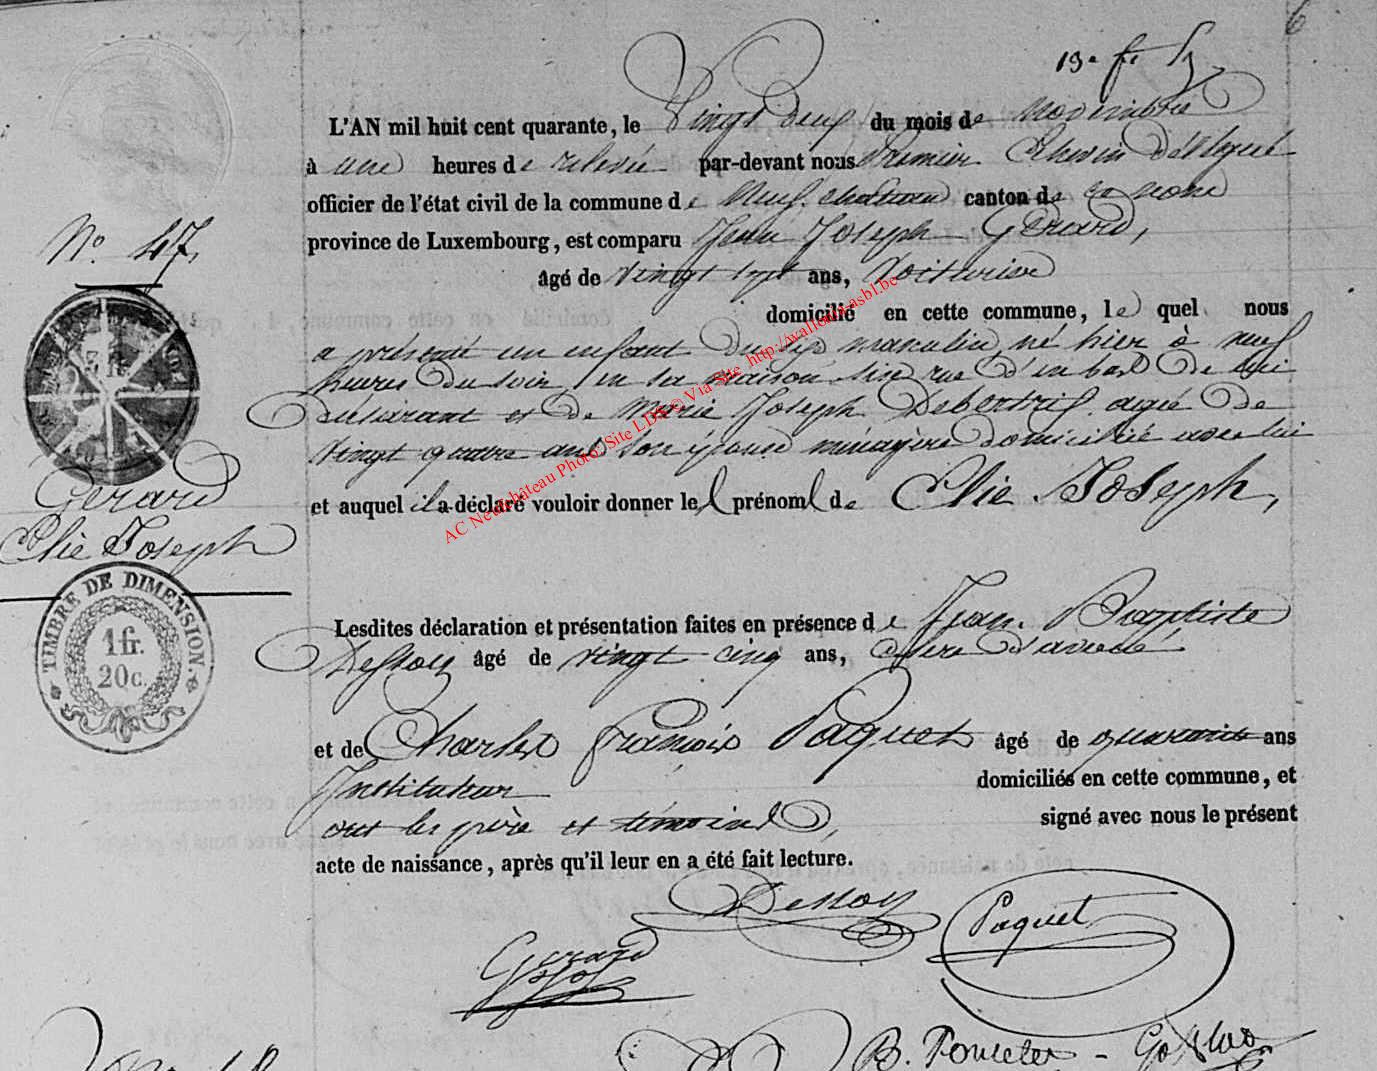 6
13e f.
L'AN mil huit cent quarante, le Vingt deux du mois de Novembre
à une heures de relevée par-devant nous Premier Echevin Délégué
officier de l'état civil de la commune de Neufchateau canton de ce nom
province de Luxembourg, est comparu Jean Joseph Gérard,
âgé de vingt sept ans, Voiturier
domicilié en cette commune, le quel nous
a présenté un enfant du sexe masculin, né hier à neuf
heures du soir, en sa maison sise rue d'en bas de lui
déclarant et de Marie Joseph agée de
vingt quatre ans son épouse ménagère domiciliée avec lui
et auquel il a déclaré vouloir donner le prénom de Elie Joseph,
No. 47,
Gérard
Elie Joseph
TIMBRE DE DIMENSION
1 fr.
20 c.
Lesdites déclaration et présentation faites en présence de Jean Baptiste
Dessoy âgé de vingt cinq ans, Clerc d'avoué
et de Charles François Paquet âgé de quarante ans
Instituteur domiciliés en cette commune, et
ont les père et témoins, signé avec nous le présent
acte de naissance, après qu'il leur en a été fait lecture.
Dessoy
Paquet
Gerard
B. Poncelet - Gofflot
AC Neufchâteau Photo: Site LDS © Via Site http://wallonia-asbl.be